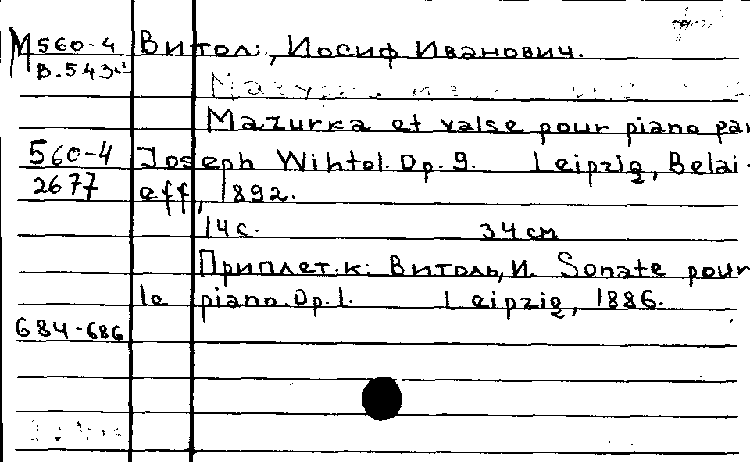 М 560-4 Витол:, Иосиф Иванович.
В.543
Mazurka et valse pour piano par
560-4 Joseph Wihtol. Op. 9. Leipzig, Belai-
2677 eff, 1892.
14 с. 34 см
Приплет. к: Витоль, И. Sonate pour
le piano. Op. 1. Leipzig, 1886.
684-686